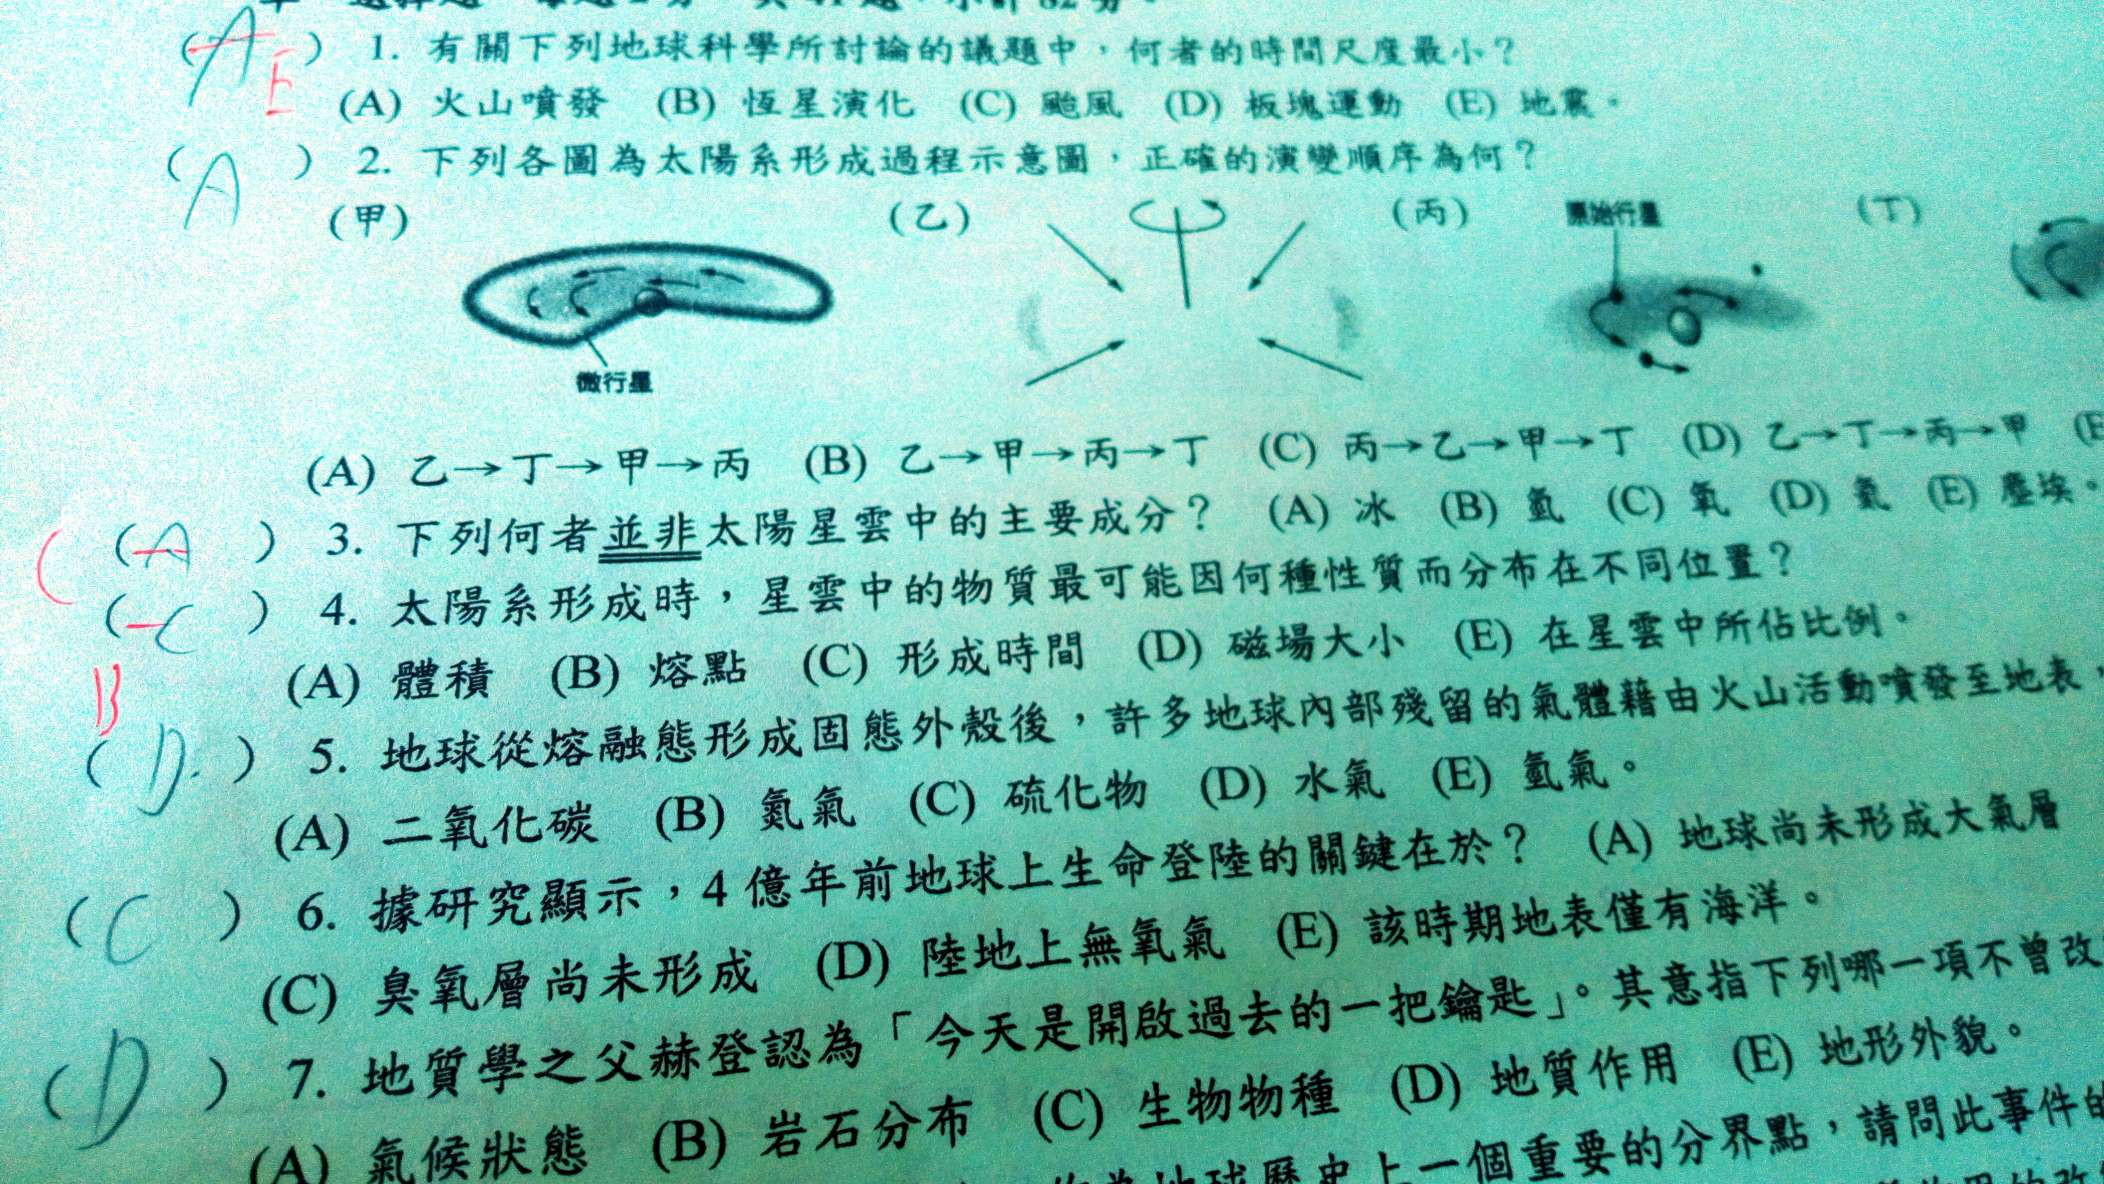 (A) 1. 有關下列地球科學所討論的議題中，何者的時間尺度最小？
E
(A) 火山噴發 (B) 恆星演化 (C) 颱風 (D) 板塊運動 (E) 地震。
(A) 2. 下列各圖為太陽系形成過程示意圖，正確的演變順序為何？
(甲) (乙) (丙) 原始行星 (丁)
微行星
(A) 乙→丁→甲→丙 (B) 乙→甲→丙→丁 (C) 丙→乙→甲→丁 (D) 乙→丁→丙→甲 (E
C (A) 3. 下列何者並非太陽星雲中的主要成分？ (A) 冰 (B) 氫 (C) 氧 (D) 氦 (E) 塵埃。
(C) 4. 太陽系形成時，星雲中的物質最可能因何種性質而分布在不同位置？
B
(A) 體積 (B) 熔點 (C) 形成時間 (D) 磁場大小 (E) 在星雲中所佔比例。
(D.) 5. 地球從熔融態形成固態外殼後，許多地球內部殘留的氣體藉由火山活動噴發至地表，
(A) 二氧化碳 (B) 氮氣 (C) 硫化物 (D) 水氣 (E) 氫氣。
(C) 6. 據研究顯示，4 億年前地球上生命登陸的關鍵在於？ (A) 地球尚未形成大氣層
(C) 臭氧層尚未形成 (D) 陸地上無氧氣 (E) 該時期地表僅有海洋。
(D) 7. 地質學之父赫登認為「今天是開啟過去的一把鑰匙」。其意指下列哪一項不曾改
(A) 氣候狀態 (B) 岩石分布 (C) 生物物種 (D) 地質作用 (E) 地形外貌。
地球歷史上一個重要的分界點，請問此事件的